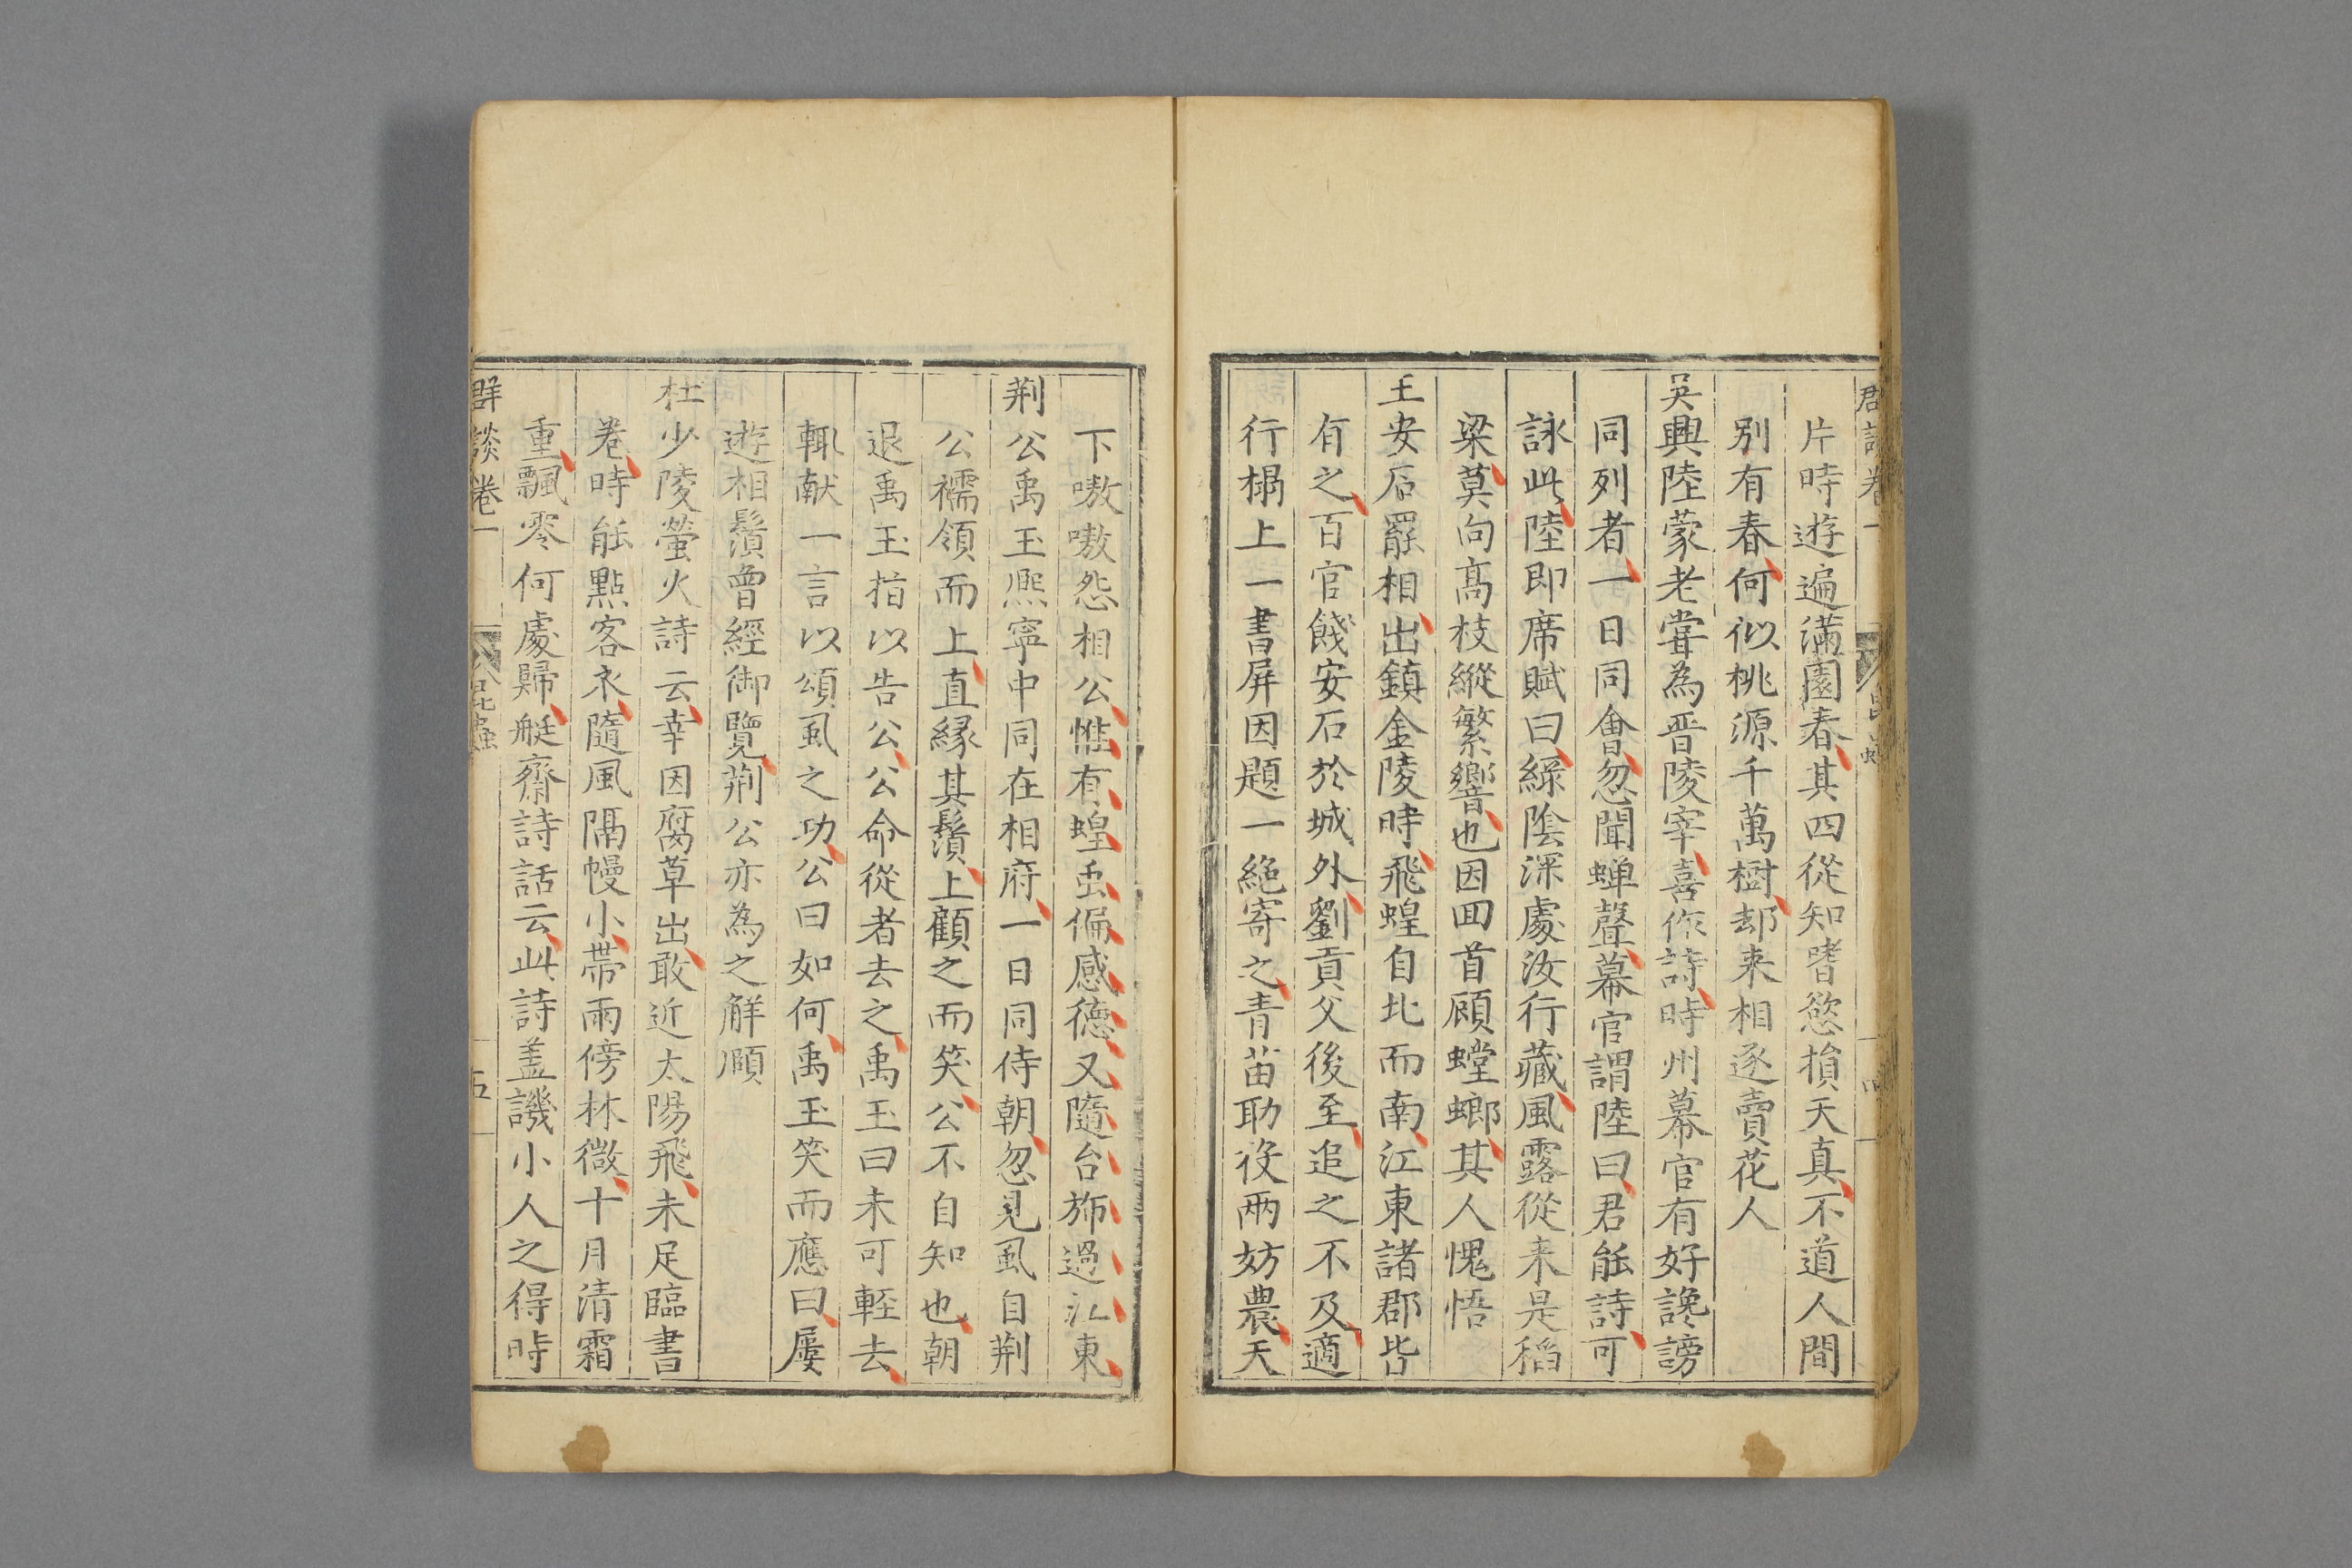 片時遊遍滿園春其四從知嗜慾損天真不道人間
別有春何似桃源千萬樹却来相逐賣花人
吳興陸蒙老甞為晋陵宰喜作詩時州幕官有好讒謗
同列者一日同會忽聞蝉聲幕官謂陸曰君能詩可
詠此陸即席賦曰緑隂深處汝行藏風露從来是稻
梁莫向髙枝縱繁響也因囬首顾螳螂其人愧悟
王安石罷相出鎮金陵時飛蝗自北而南江東諸郡皆
有之百官餞安石於城外劉貢父後至追之不及適
行榻上一書屏因題一絶寄之青苗助役两妨農天
下嗷嗷怨相公惟有蝗虫偏感德又隨台斾過江東
荆公禹玉熈寧中同在相府一日同侍朝忽見虱自荆
公襦領而上直縁其鬚上顧之而笑公不自知也朝
退禹玉指以告公公命從者去之禹玉曰未可輕去
輒献一言以頌虱之功公曰如何禹玉笑而應曰屢
遊相鬚曾經御覽荆公亦為之觧頤
杜少陵螢火詩云幸因腐草出敢近太陽飛未足臨書
巻時能點客衣隨風隔幔小帶雨傍林微十月清霜
重飄零何處歸艇齋詩話云此詩盖譏小人之得時
群談卷一 昆蟲 五